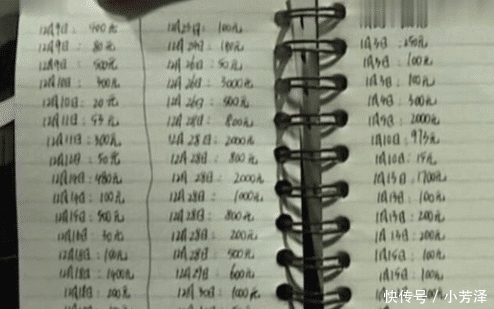 12月9日: 400元
12月9日: 80元
12月9日: 500元
12月10日: 300元
12月10日: 20元
12月11日: 53元
12月11日: 300元
12月12日: 50元
12月14日: 480元
12月14日: 100元
12月15日: 500元
12月18日: 1400元
12月18日: 200元
12月25日: 100元
12月26日: 50元
12月26日: 3000元
12月26日: 500元
12月28日: 800元
12月28日: 2000元
12月28日: 800元
12月28日: 2000元
12月28日: 1000元
12月28日: 800元
12月28日: 200元
12月28日: 500元
12月29日: 600元
12月30日: 1000元
1月3日: 250元
1月3日: 100元
1月3日: 100元
1月9日: 2000元
1月10日: 973元
1月10日: 15元
1月13日: 1700元
1月13日: 100元
1月13日: 200元
1月13日: 200元
1月15日: 100元
1月15日: 100元
快传号/小芳泽